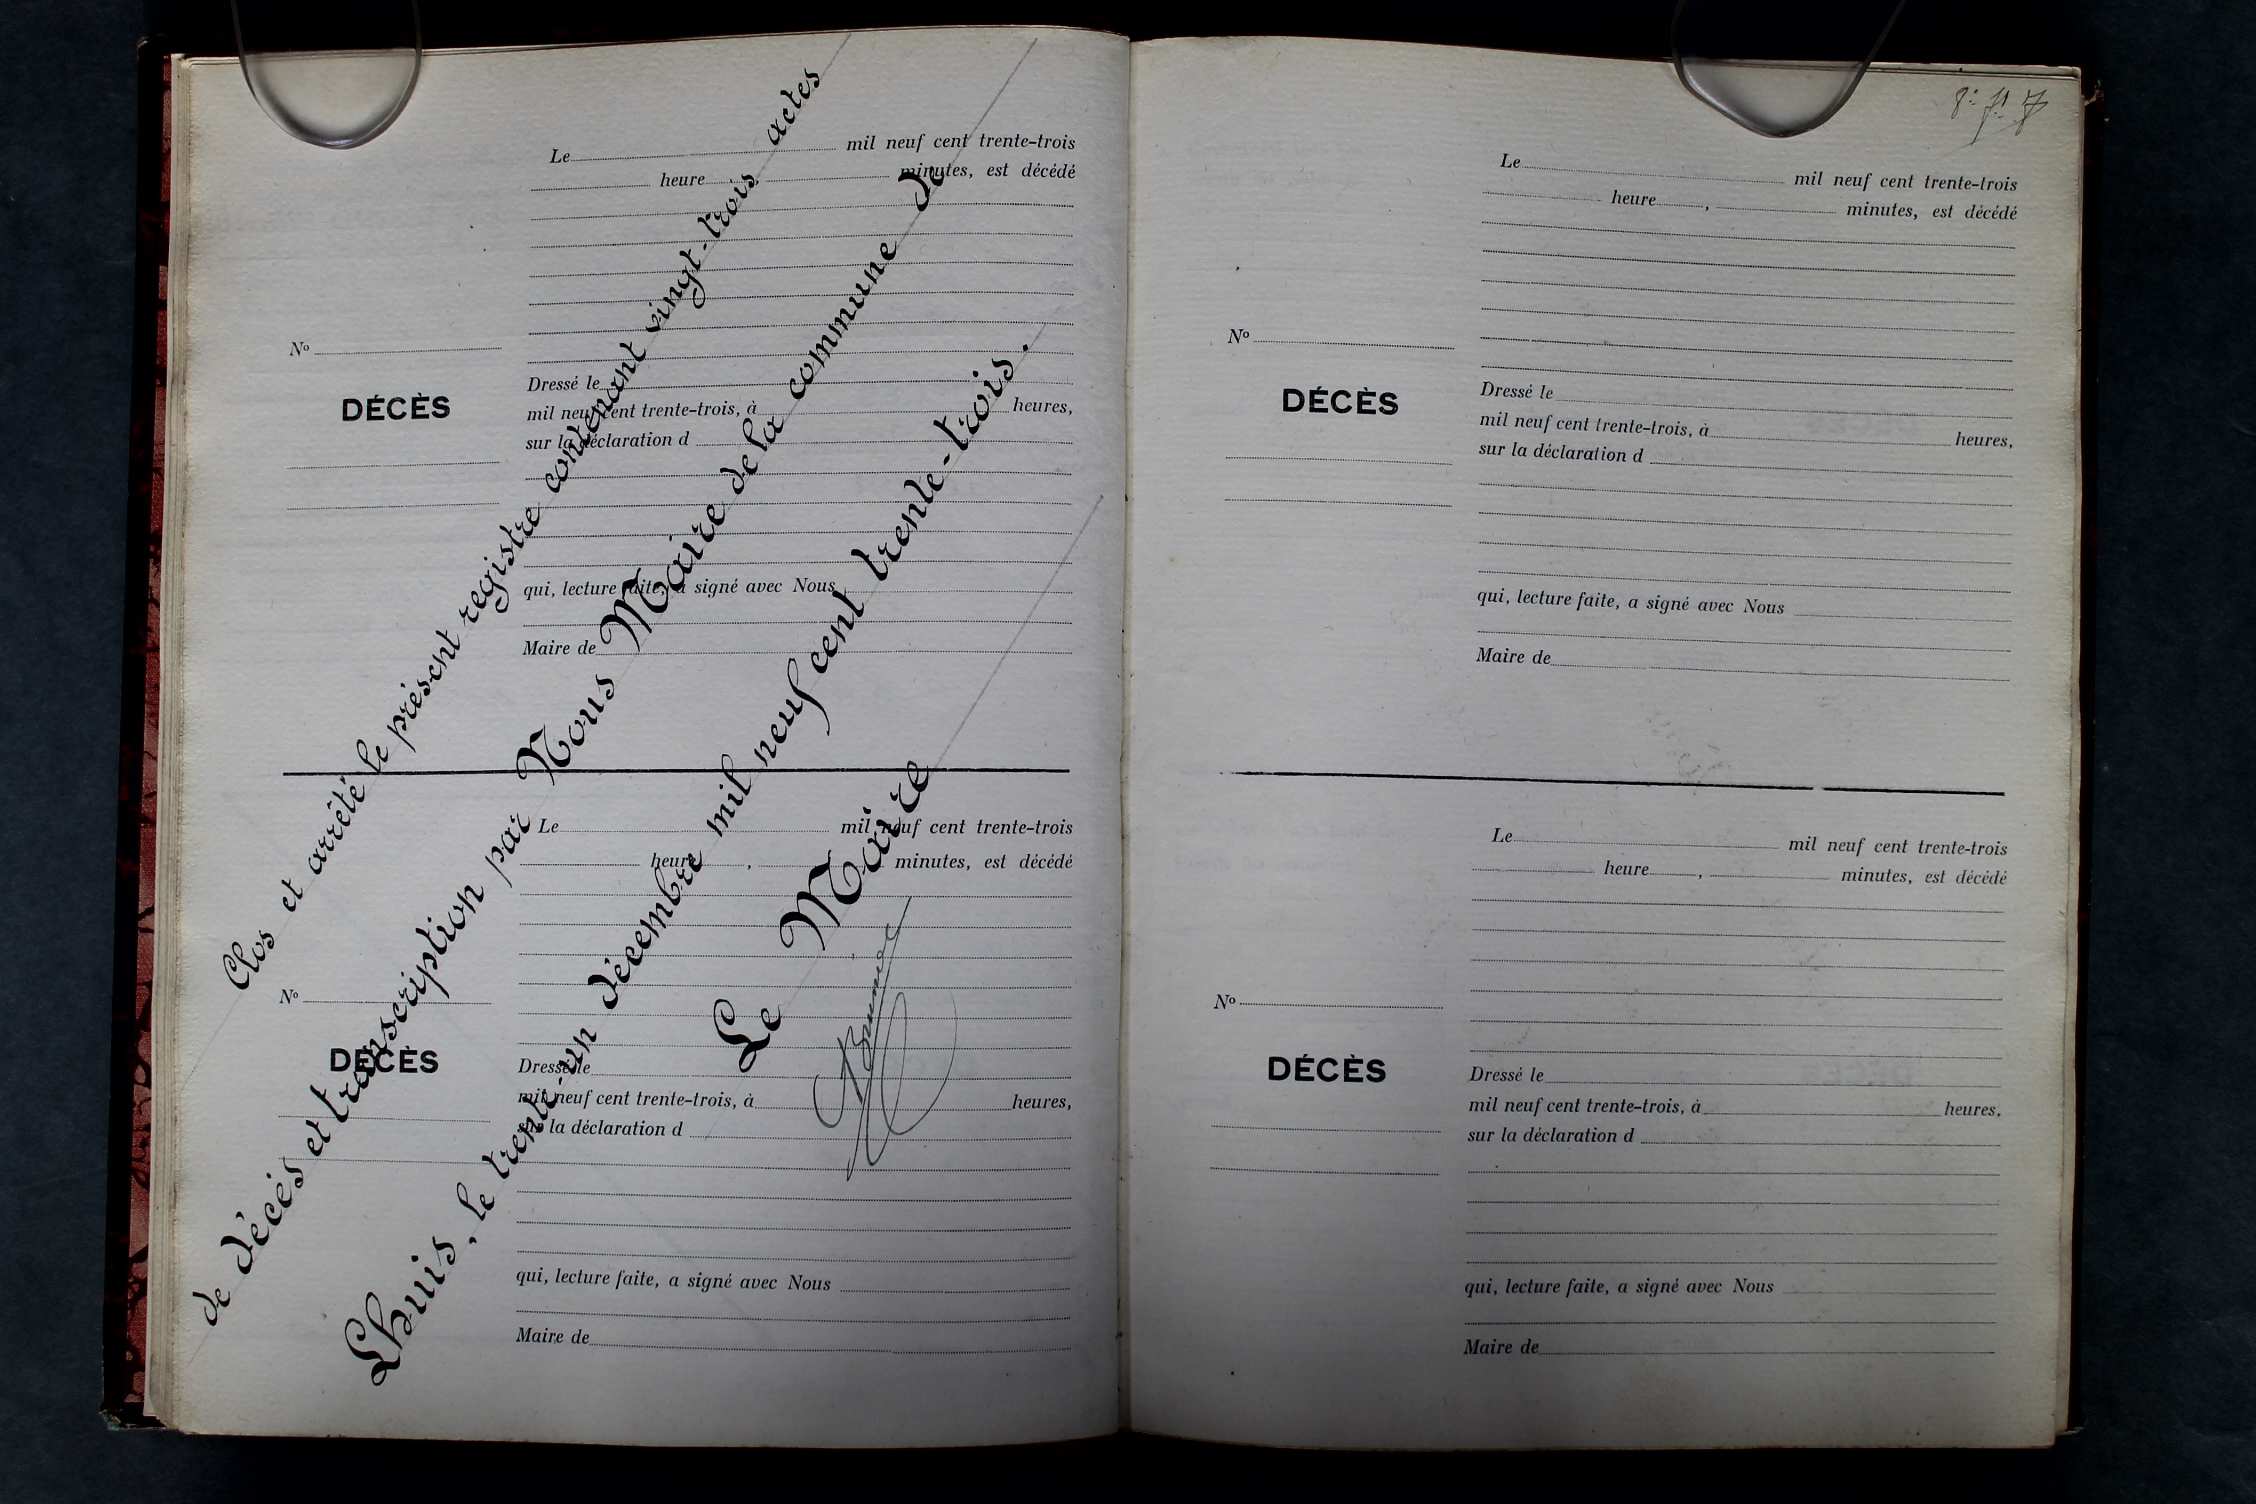 Le mil neuf cent trente-trois
heure , minutes, est décédé
No
DÉCÈS
Dressé le
mil neuf cent trente-trois, à heures,
sur la déclaration d
qui, lecture faite, a signé avec Nous
Maire de
Le mil neuf cent trente-trois
heure , minutes, est décédé
No
DÉCÈS
Dressé le
mil neuf cent trente-trois, à heures,
sur la déclaration d
qui, lecture faite, a signé avec Nous
Maire de
Clos et arrêté le présent registre contenant vingt-trois actes
de décès et transcription par Nous Maire de la commune de
Lhuis, le trente-un décembre mil neuf cent trente-trois.
Le Maire
Le mil neuf cent trente-trois
heure , minutes, est décédé
No
DÉCÈS
Dressé le
mil neuf cent trente-trois, à heures,
sur la déclaration d
qui, lecture faite, a signé avec Nous
Maire de
Le mil neuf cent trente-trois
heure , minutes, est décédé
No
DÉCÈS
Dressé le
mil neuf cent trente-trois, à heures,
sur la déclaration d
qui, lecture faite, a signé avec Nous
Maire de